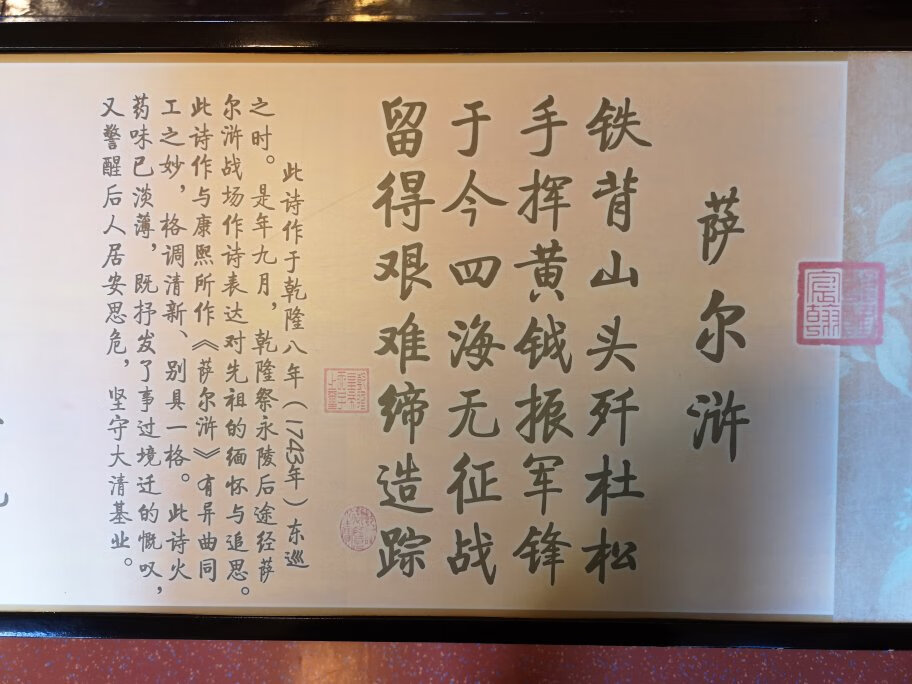 萨尔浒
铁背山头歼杜松
手挥黄钺振军锋
于今四海无征战
留得艰难缔造踪
此诗作于乾隆八年(1743年)东巡
之时。是年九月,乾隆祭永陵后途经萨
尔浒战场作诗表达对先祖的缅怀与追思。
此诗作与康熙所作《萨尔浒》有异曲同
工之妙,格调清新、别具一格。此诗火
药味已淡薄,既抒发了事过境迁的慨叹,
又警醒后人居安思危,坚守大清基业。